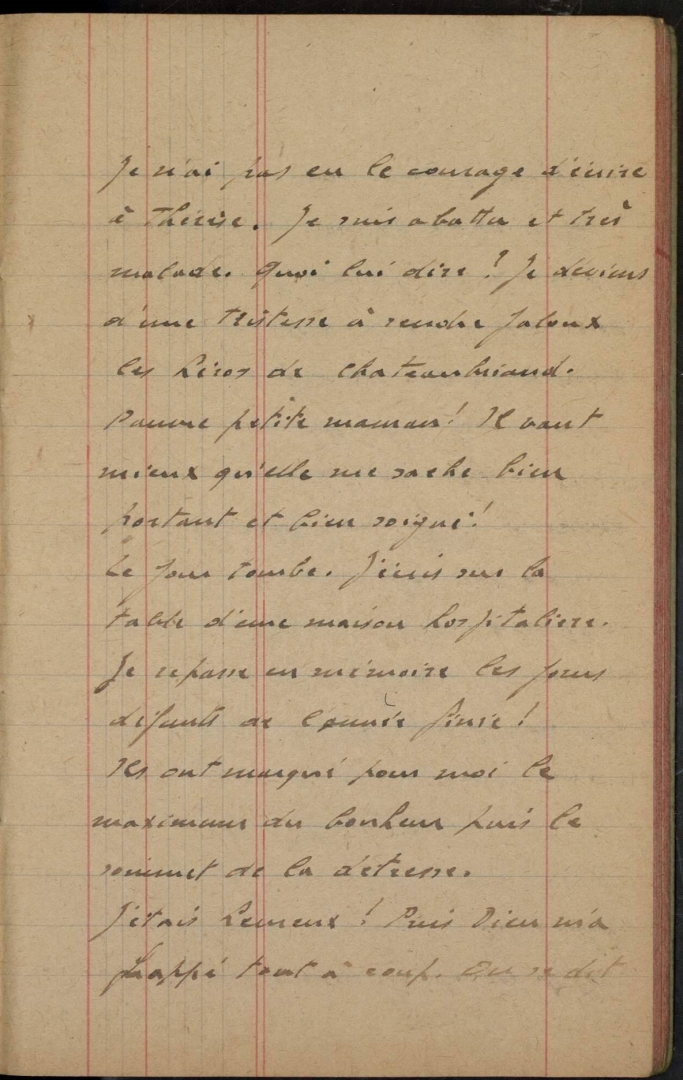 Je n'ai pas eu le courage d'écrire
à Thérèse. Je suis abattu et très
malade. Quoi lui dire ? Je deviens
d'une tristesse à rendre jaloux
les héros de Chateaubriand.
Pauvre petite maman ! Il vaut
mieux qu'elle me sache bien
portant et bien soigné !
Le jour tombe. J'écris sur la
table d'une maison hospitalière.
Je repasse en mémoire les jours
défunts de l'année finie !
Ils ont marqué pour moi le
maximum du bonheur puis le
sommet de la détresse.
J'étais heureux ! Puis Dieu m'a
frappé tout à coup. On se dit